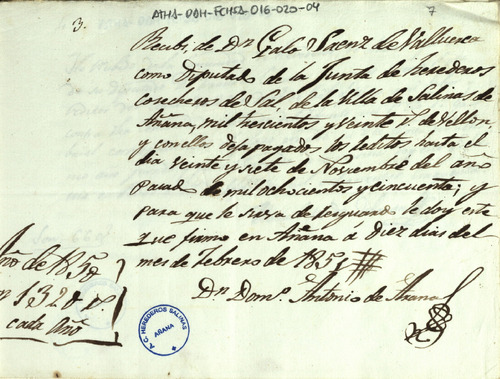 3.
ATHA-DAH-FCHSA-016-020-04
7
Recibí de Dn. Galo Saenz de Valluerca
como Diputado de la Junta de herederos
cosecheros de Sal, de la Villa de Salinas de
Añana, mil trescientos y veinte rs. de Vellon
y con ellos deja pagados los reditos hasta el
dia veinte y siete de Noviembre del año
pasado de mil ochocientos y cincuenta; y
para que le sirva de resguardo le doy este
que firmo en Añana á diez dias del
mes de febrero de 1851
Dn. Domo. Antonio de Arana
Año de 1850
1320 rs.
cada Año
A.C. HEREDEROS SALINAS
AÑANA